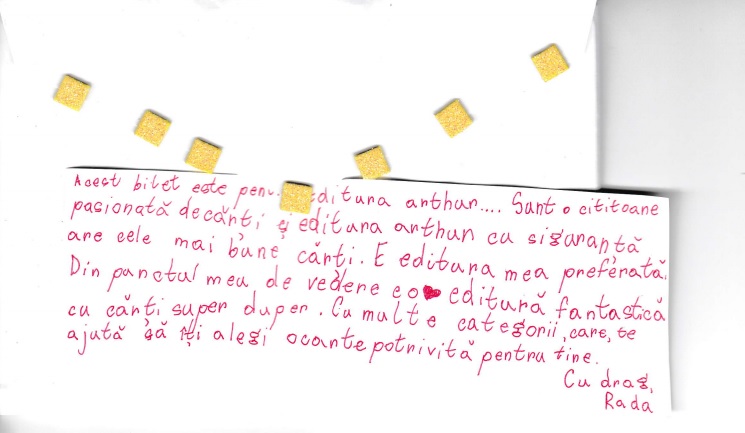 Acest bilet este pentru editura arthur.... Sunt o cititoare
pasionată de cărți și editura arthur cu siguranță
are cele mai bune cărți. E editura mea preferată.
Din punctul meu de vedere e o ❤ editură fantastică
cu cărți super duper. Cu multe categorii, care, te
ajută să îți alegi o carte potrivită pentru tine.
Cu drag,
Rada